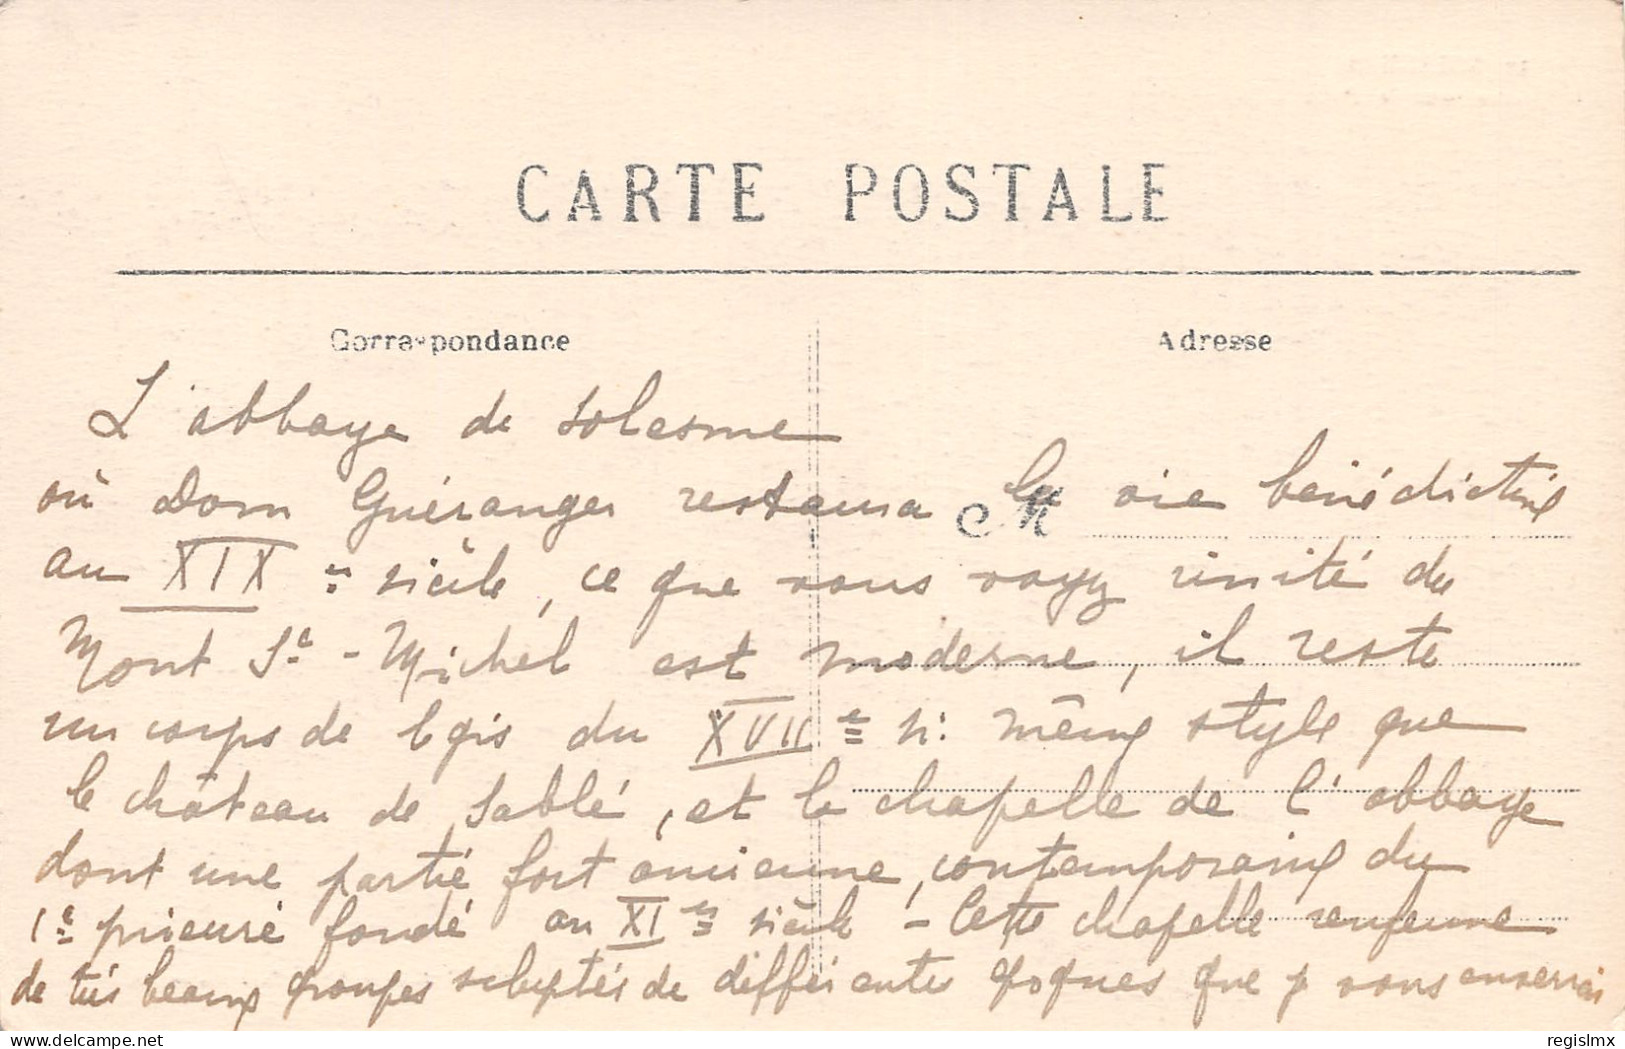 CARTE POSTALE
Correspondance
Adresse
L'abbaye de Solesme
où Dom Guéranger restaura la vie bénédictine
au XIX e siècle, ce que vous voyez imité du
Mont St-Michel est moderne, il reste
un corps de logis du XVII e si: même style que
le château de Sablé, et la chapelle de l'abbaye
dont une partie fort ancienne, contemporaine du
1er prieuré fondé au XI e siècle - Cette chapelle renferme
de très beaux groupes sculptés de différentes époques que je vous enverrai
regislmx
delcampe.net